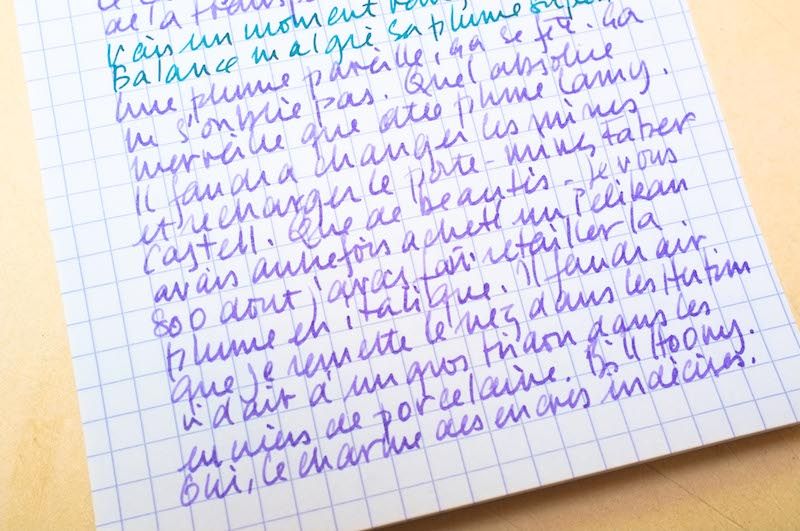 de la transp
vais un moment
Balance malgré sa plume super
Une plume pareille, ça se fête. Ça
ne s'oublie pas. Quel absolue
merveille que cette plume Lamy.
Il faudra changer les mines
et recharger le porte-mines Faber
Castell. Que de beautés. Je vous
avais autrefois acheté un Pelikan
800 dont j'avais fait retailler la
plume en italique. Il faudrait
que je remette le nez dans les
d'un gros dans les
encriers de porcelaine. Bill Hoong.
Oui, le charme des encres indécises.